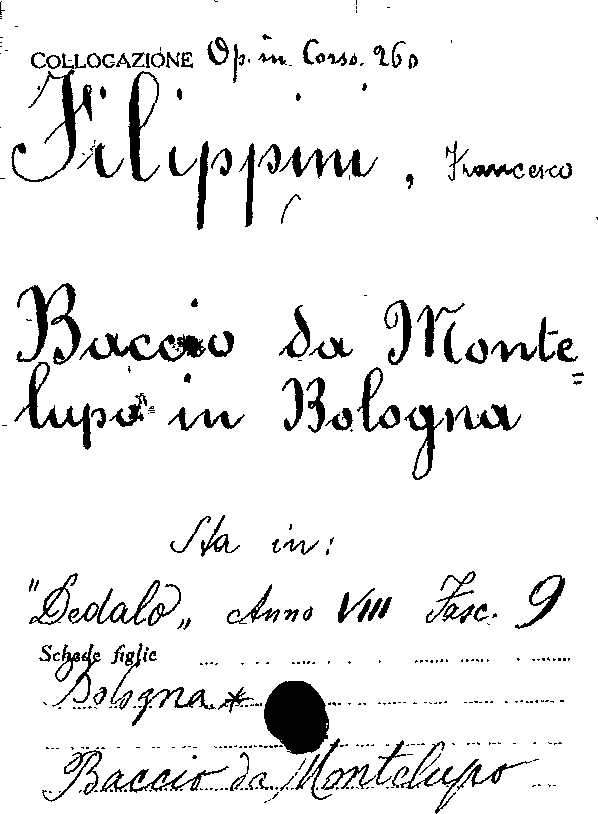 COLLOGAZIONE Op. in Corso. 260
Filippini, Francesco
Baccio da Monte=
lupo in Bologna
Sta in:
"Dedalo„ Anno VIII Fasc. 9
Schede figlie
Bologna *
Baccio da Montelupo